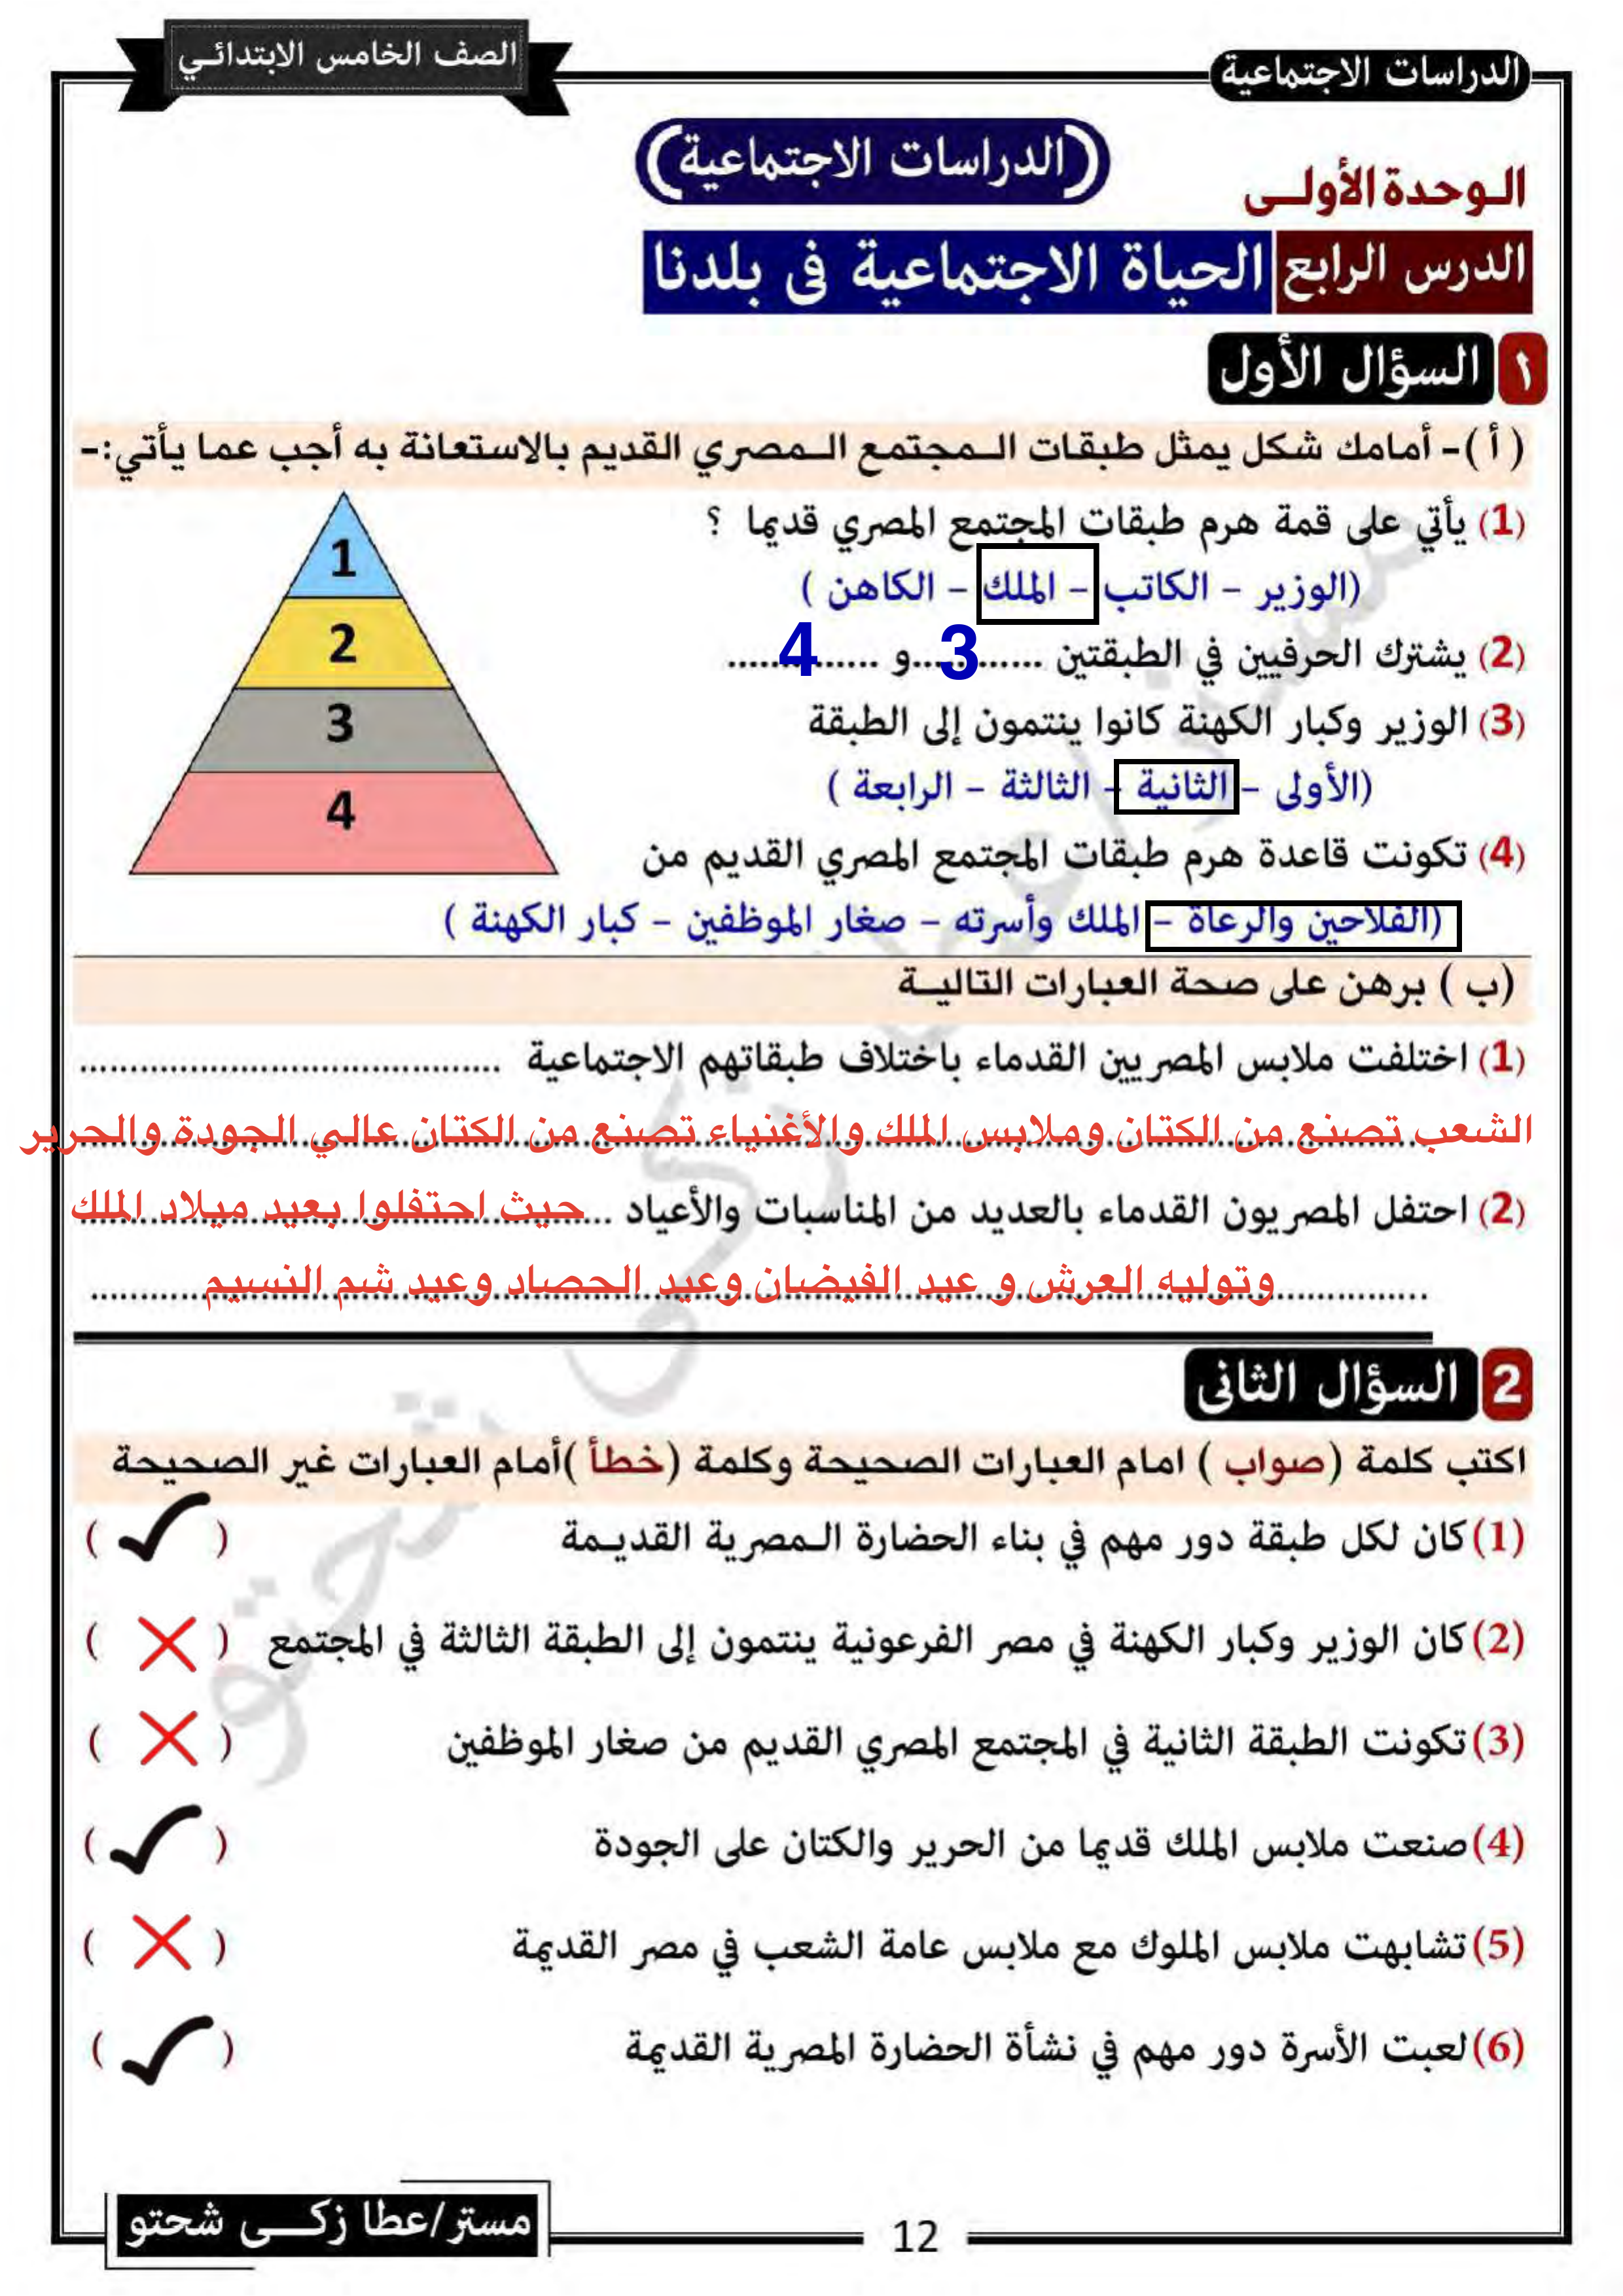 الدراسات الاجتماعية
الصف الخامس الابتدائي
(الدراسات الاجتماعية)
الوحدة الأولى
الدرس الرابع الحياة الاجتماعية فى بلدنا
١ السؤال الأول
( أ )- أمامك شكل يمثل طبقات المجتمع المصري القديم بالاستعانة به أجب عما يأتي:-
(1) يأتي على قمة هرم طبقات المجتمع المصري قديما ؟
(الوزير - الكاتب - الملك - الكاهن )
(2) يشترك الحرفيين في الطبقتين ............3 و ............4
(3) الوزير وكبار الكهنة كانوا ينتمون إلى الطبقة
(الأولى - الثانية - الثالثة - الرابعة )
(4) تكونت قاعدة هرم طبقات المجتمع المصري القديم من
(الفلاحين والرعاة - الملك وأسرته - صغار الموظفين - كبار الكهنة )
1
2
3
4
(ب ) برهن على صحة العبارات التالية
(1) اختلفت ملابس المصريين القدماء باختلاف طبقاتهم الاجتماعية ..........................................
الشعب تصنع من الكتان وملابس الملك والأغنياء تصنع من الكتان عالي الجودة والحرير
(2) احتفل المصريون القدماء بالعديد من المناسبات والأعياد ... حيث احتفلوا بعيد ميلاد الملك
وتوليه العرش و عيد الفيضان وعيد الحصاد وعيد شم النسيم
2 السؤال الثانى
اكتب كلمة (صواب ) امام العبارات الصحيحة وكلمة (خطأ )أمام العبارات غير الصحيحة
(1) كان لكل طبقة دور مهم في بناء الحضارة المصرية القديمة ( ✓ )
(2) كان الوزير وكبار الكهنة في مصر الفرعونية ينتمون إلى الطبقة الثالثة في المجتمع ( ✗ )
(3) تكونت الطبقة الثانية في المجتمع المصري القديم من صغار الموظفين ( ✗ )
(4) صنعت ملابس الملك قديما من الحرير والكتان على الجودة ( ✓ )
(5) تشابهت ملابس الملوك مع ملابس عامة الشعب في مصر القديمة ( ✗ )
(6) لعبت الأسرة دور مهم في نشأة الحضارة المصرية القديمة ( ✓ )
مستر/عطا زكى شحتو
12
مستر/عطا زكى شحتو